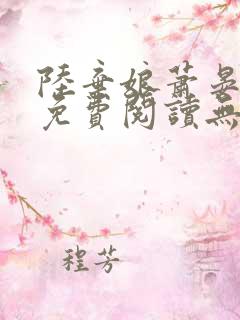 陸棄娘蕭晏
免費閱讀無
程芳